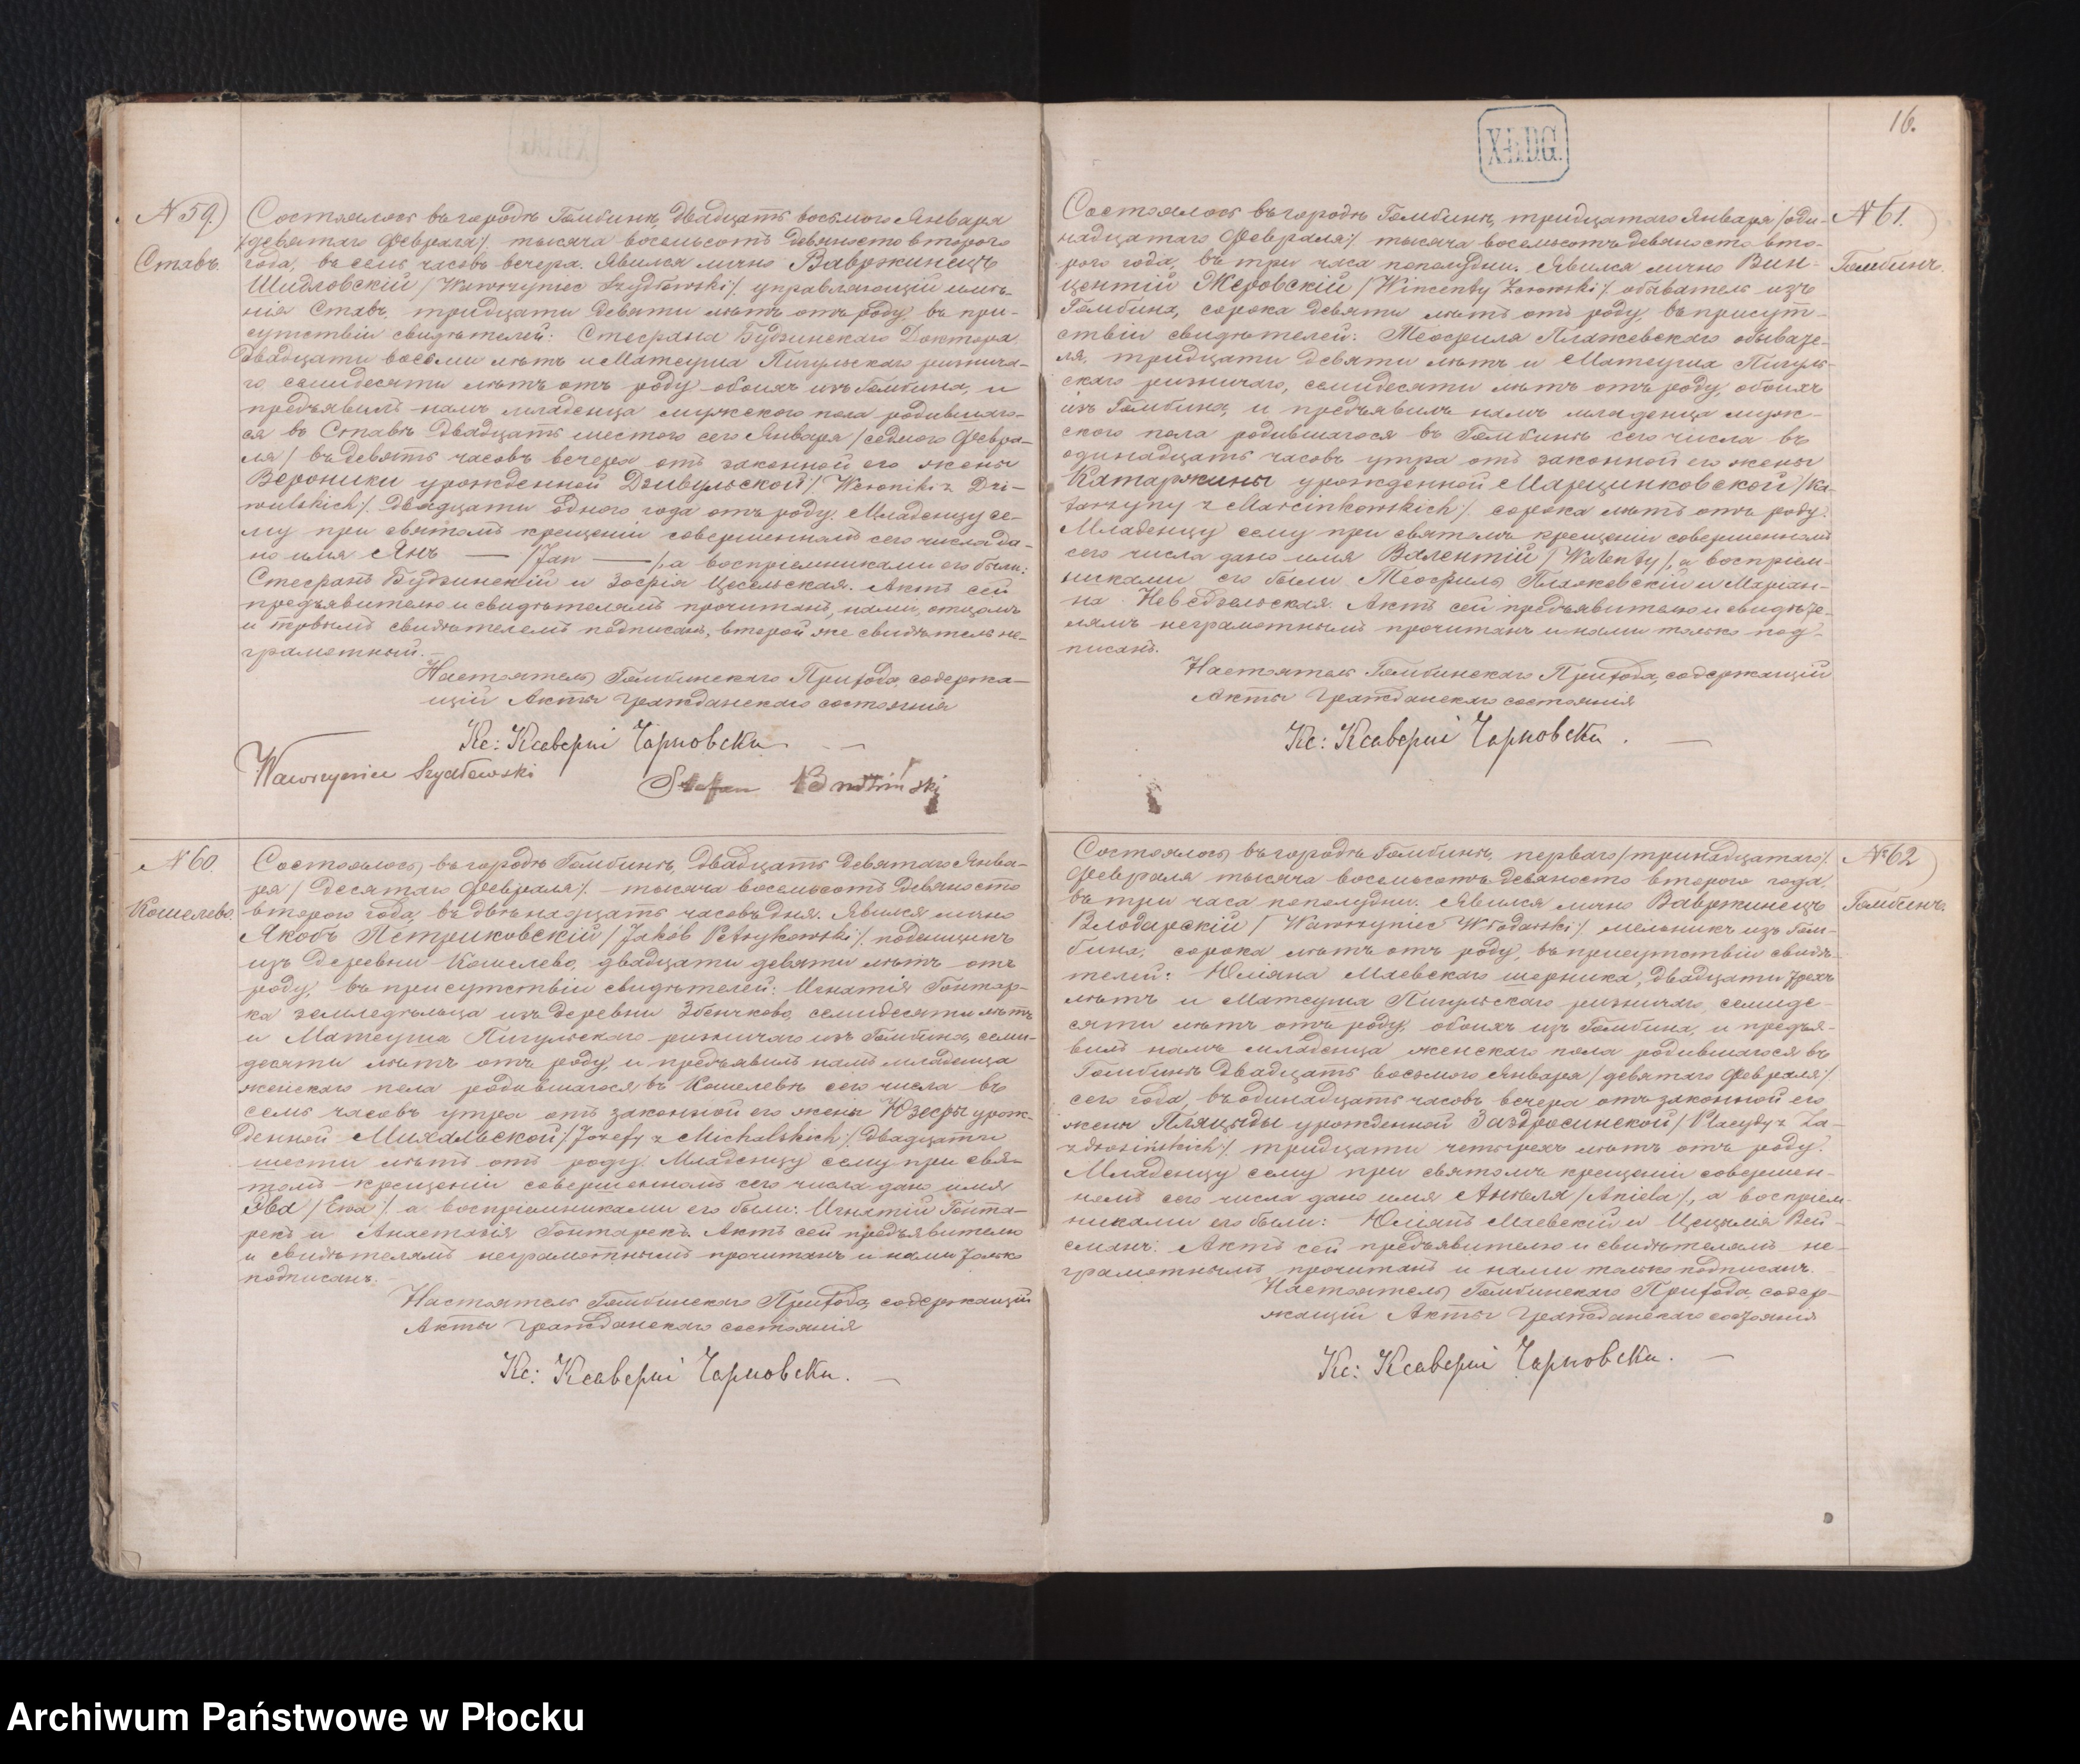 № 59.
Ставъ.
Состоялось въ городѣ Гомбинѣ, двадцать восьмого Января
/девятаго Февраля/. тысяча восемьсотъ девяносто второго
года, въ семь часовъ вечера. Явился лично Вавржинецъ
Шидловскій /Wawrzyniec Szydłowski/. управляющій имѣ-
нія Ставъ, тридцати девяти лѣтъ отъ роду, въ при-
сутствіи свидѣтелей: Стефана Будзинскаго Доктора
двадцати восьми лѣтъ и Матеуша Пигульскаго ризнича-
го, семидесяти лѣтъ отъ роду, обоихъ изъ Гомбина, и
предъявилъ намъ младенца мужскаго пола родившаго-
ся въ Ставѣ двадцать шестого сего Января /седмого Февра-
ля/ въ девять часовъ вечера отъ законной его жены
Вероники урожденной Дзивульской /Weroniki z Dzi-
wulskich/. двадцати одного года отъ роду. Младенцу се-
му при святомъ крещеніи совершенномъ сего числа да-
но имя Янъ — /Jan —/, а воспріемниками его были:
Стефанъ Будзинскій и Зофія Цесельская. Актъ сей
предъявителю и свидѣтелямъ прочитанъ, нами, отцомъ
и первымъ свидѣтелемъ подписанъ, второй же свидѣтель не-
грамотный.—
Настоятель Гомбинскаго Прихода, содержа-
щій Акты гражданскаго состоянія
Кс: Ксаверій Чарновски. —
Wawrzyniec Szydłowski
Stefan Budziński
№ 60.
Кошелево.
Состоялось въ городѣ Гомбинѣ, двадцать девятаго Янва-
ря /десятаго Февраля/. тысяча восемьсотъ девяносто
второго года, въ двѣнадцать часовъ дня. Явился лично
Якобъ Петриковскій /Jakób Petrykowski/. поденщикъ
изъ деревни Кошелево, двадцати девяти лѣтъ отъ
роду, въ присутствіи свидѣтелей: Игнатія Гонтар-
ка земледѣльца изъ деревни Збенчково, семидесяти лѣтъ
и Матеуша Пигульскаго ризничаго изъ Гомбина, семи-
десяти лѣтъ отъ роду, и предъявилъ намъ младенца
женскаго пола родившагося въ Кошелевѣ сего числа въ
семь часовъ утра отъ законной его жены Юзефы урож-
денной Михальской /Józefy z Michalskich/. двадцати
шести лѣтъ отъ роду. Младенцу сему при свя-
томъ крещеніи совершенномъ сего числа дано имя
Эва /Ewa/. а воспріемниками его были: Игнатій Гонта-
рекъ и Анастазія Гонтарекъ. Актъ сей предъявителю
и свидѣтелямъ неграмотнымъ прочитанъ и нами только
подписанъ.
Настоятель Гомбинскаго Прихода, содержащій
Акты гражданскаго состоянія
Кс: Ксаверій Чарновски. —
16.
X.Ł.D.G.
№ 61.
Гомбинъ.
Состоялось въ городѣ Гомбинѣ, тридцатаго Января /оди-
надцатаго Февраля/. тысяча восемьсотъ девяносто вто-
рого года, въ три часа пополудни. Явился лично Вин-
центій Жеровскій /Wincenty Żerowski/. обыватель изъ
Гомбина, сорока девяти лѣтъ отъ роду, въ присут-
ствіи свидѣтелей: Теофиля Пляжевскаго обывате-
ля, тридцати девяти лѣтъ и Матеуша Пигуль-
скаго ризничаго, семидесяти лѣтъ отъ роду, обоихъ
изъ Гомбина, и предъявилъ намъ младенца муж-
ского пола родившагося въ Гомбинѣ сего числа въ
одинадцать часовъ утра отъ законной его жены
Катаржины урожденной Марцинковской /Ka-
tarzyny z Marcinkowskich/. сорока лѣтъ отъ роду.
Младенцу сему при святомъ крещеніи совершенномъ
сего числа дано имя Валентій /Walenty/, а воспріем-
никами его были Теофиль Пляжевскій и Маріан-
на Неведзельская. Актъ сей предъявителю и свидѣте-
лямъ неграмотнымъ прочитанъ и нами только под-
писанъ.
Настоятель Гомбинскаго Прихода, содержащій
Акты гражданскаго состоянія
Кс: Ксаверій Чарновски. —
№ 62
Гомбинъ.
Состоялось въ городѣ Гомбинѣ, перваго /тринадцатаго/.
Февраля тысяча восемьсотъ девяносто второго года,
въ три часа пополудни. Явился лично Вавржинецъ
Влодарскій /Wawrzyniec Włodarski/. мельникъ изъ Гом-
бина, сорока лѣтъ отъ роду, въ присутствіи свидѣ-
телей: Юліяна Маевскаго шорника, двадцати трехъ
лѣтъ и Матеуша Пигульскаго ризничаго, семиде-
сяти лѣтъ отъ роду, обоихъ изъ Гомбина, и предъя-
вилъ намъ младенца женскаго пола родившагося въ
Гомбинѣ двадцать восьмого Января /девятаго Февраля/
сего года, въ одинадцать часовъ вечера отъ законной его
жены Пляцыды урожденной Заздросинской /Placydy z Za-
zdrosińskich/. тридцати четырехъ лѣтъ отъ роду.
Младенцу сему при святомъ крещеніи совершен-
номъ сего числа дано имя Анѣля /Aniela/, а воспріем-
никами его были: Юліанъ Маевскій и Цецилія Вей-
сманъ. Актъ сей предъявителю и свидѣтелямъ не-
грамотнымъ прочитанъ и нами только подписанъ.
Настоятель Гомбинскаго Прихода, содер-
жащій Акты гражданскаго состоянія
Кс: Ксаверій Чарновски. —
Archiwum Państwowe w Płocku